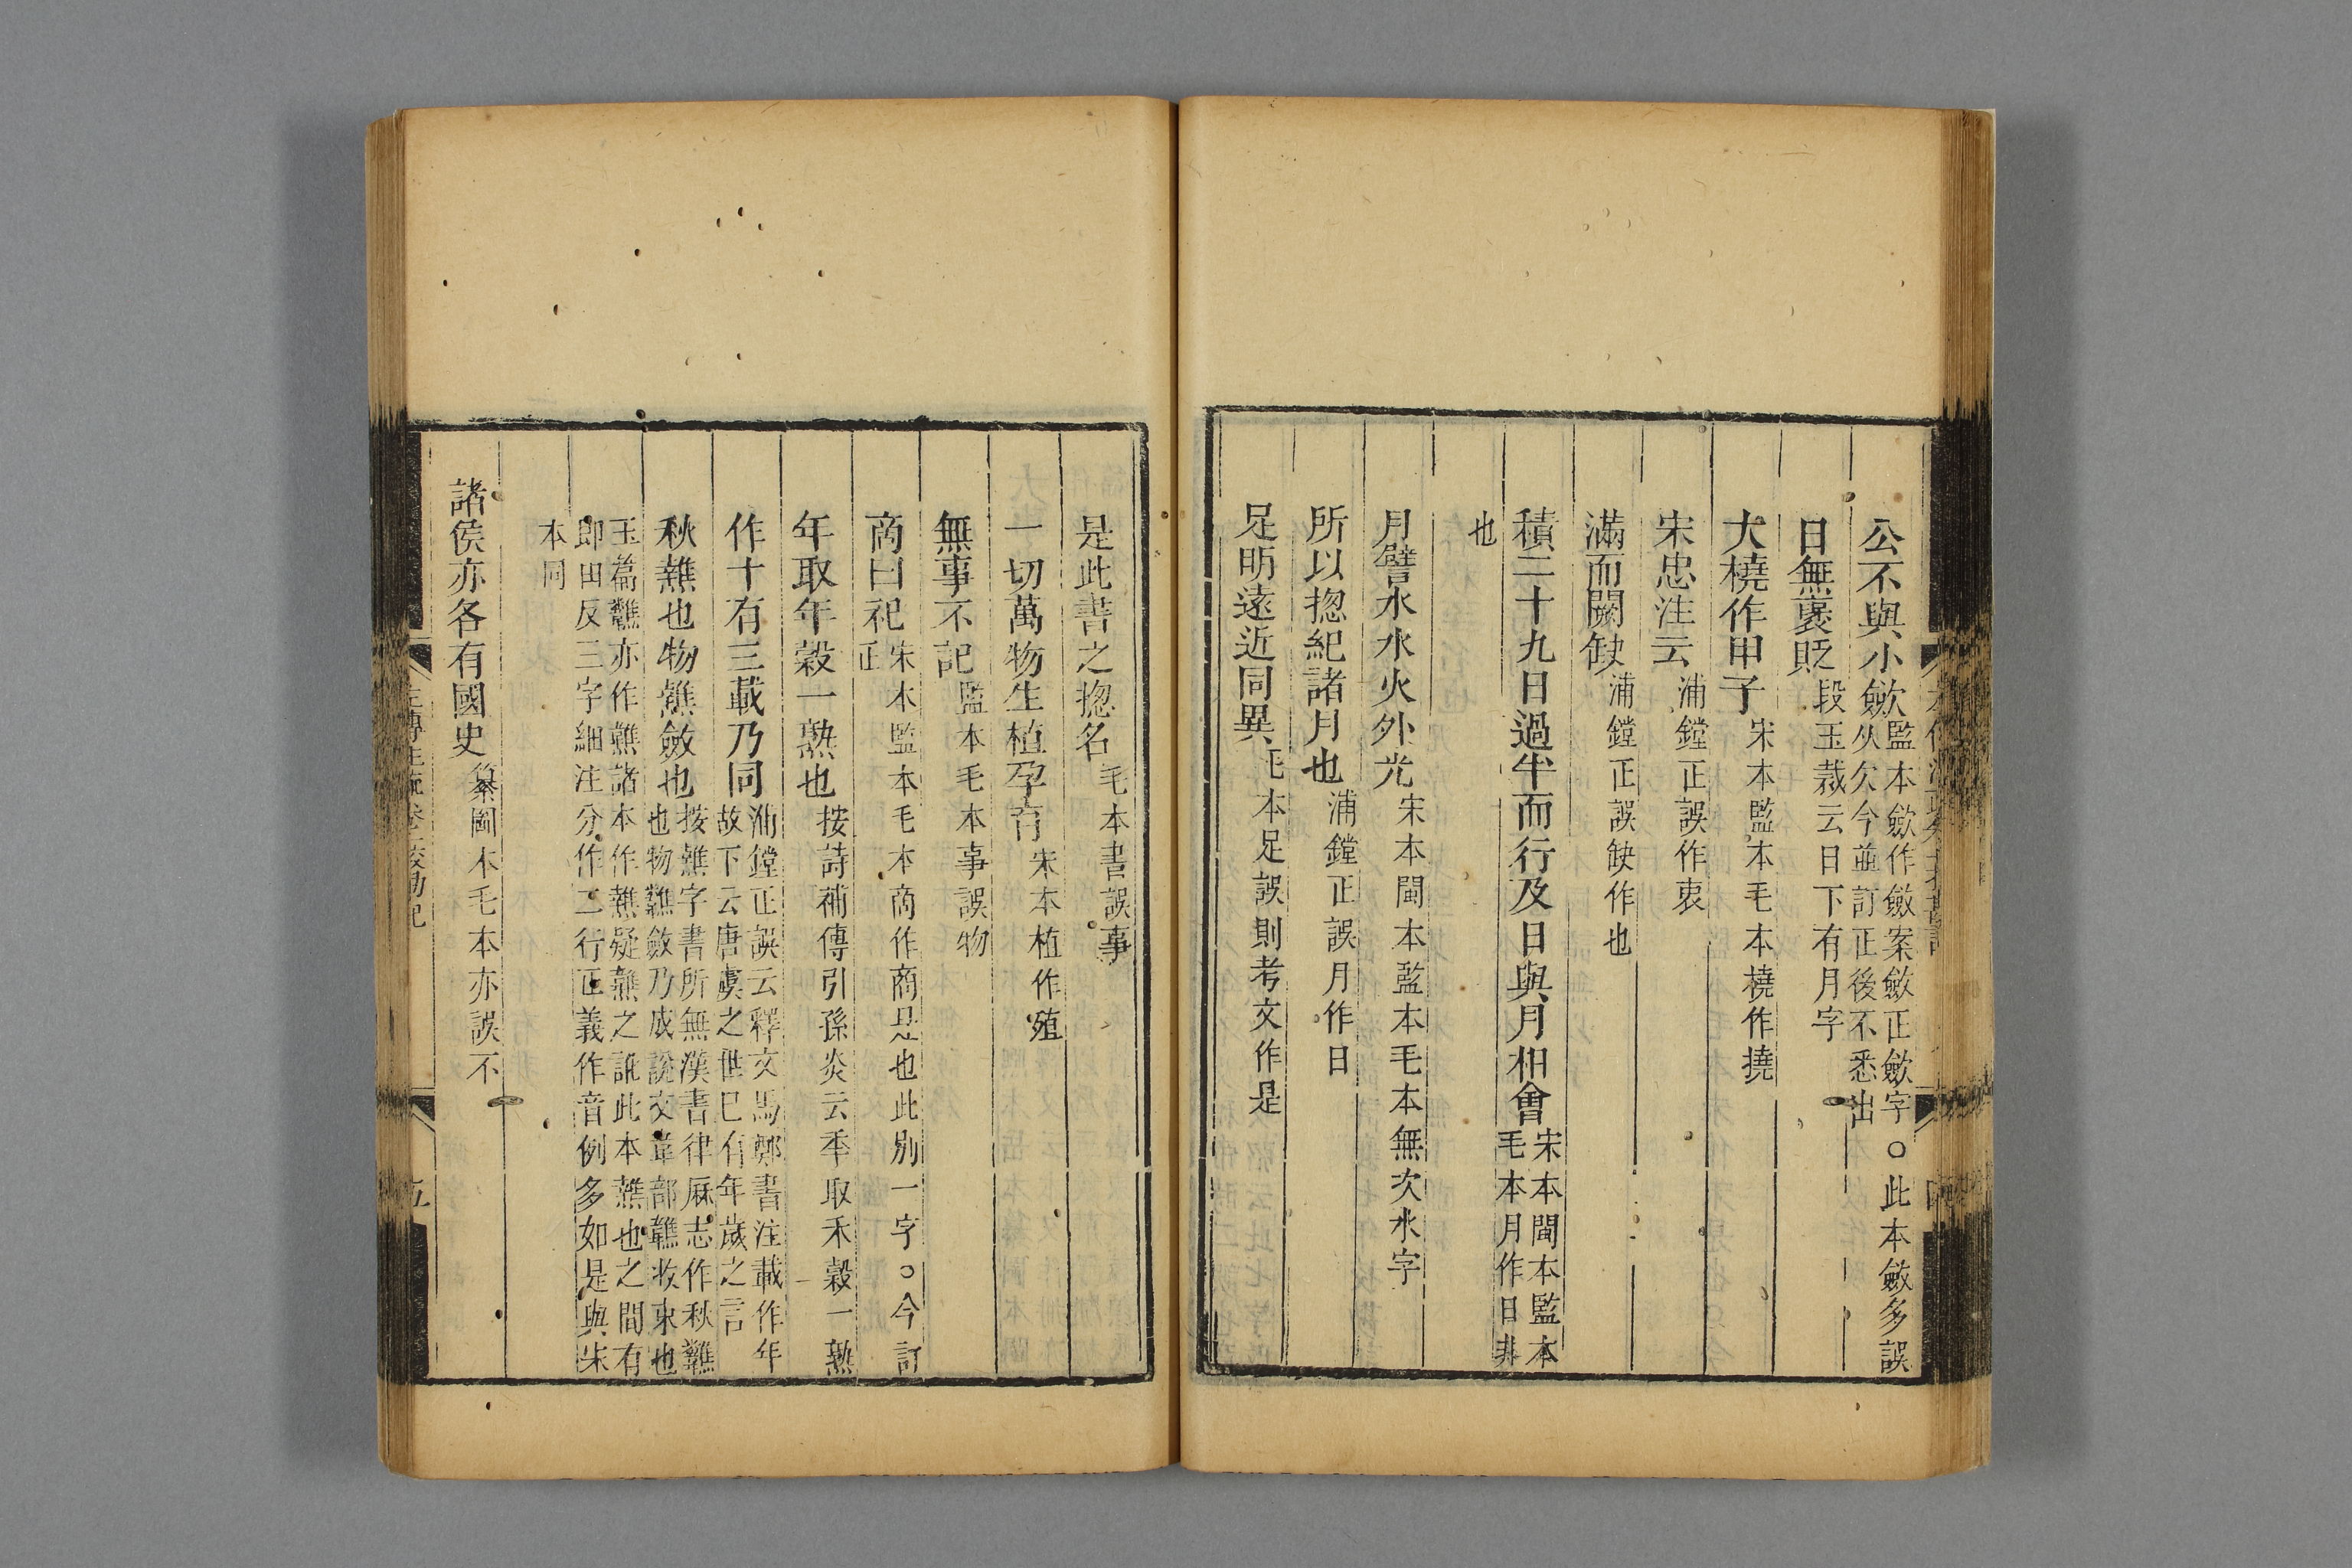 公不與小歛監本歛作斂案斂正歛字○此本斂多誤
从欠今並訂正後不悉出
日無褒貶段玉裁云日下有月字
大橈作甲子宋本監本毛本橈作撓
宋忠注云浦鏜正誤作衷
滿而闕缺浦鏜正誤缺作也
積二十九日過半而行及日與月相會宋本閩本監本
毛本月作日非
也
月譬水水火外光宋本閩本監本毛本無次水字
所以揔紀諸月也浦鏜正誤月作日
足明遠近同異毛本足誤則考文作是
是此書之揔名毛本書誤事
一切萬物生植孕育宋本植作殖
無事不記監本毛本事誤物
商曰祀宋本監本毛本商作商是也此別一字○今訂
正
年取年穀一熟也按詩補傳引孫炎云年取禾穀一熟
作十有三載乃同浦鏜正誤云釋文馬鄭書注載作年
故下云唐虞之世已有年歲之言
秋䆋也物䆋斂也按䆋字書所無漢書律厤志作秋䪜
也物䪜斂乃成說文韋部䪜收束也
玉篇䪜亦作䆋諸本作䆋疑䆋之訛此本䆋也之間有
即由反三字細注分作二行正義作音例多如是與宋
本同
諸侯亦各有國史纂圖本毛本亦誤不
五